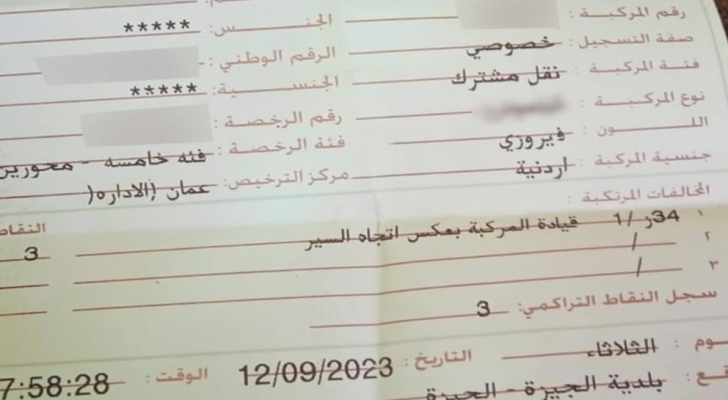 رقم المركبة :
صفة التسجيل : خصوصي
فئة المركبة : نقل مشترك
نوع المركبة :
اللــــون : فيروزي
جنسية المركبة : اردنية
الجنـــــس: *****
الرقم الوطني :
الجنســـية: *****
رقم الرخصة :
فئة الرخصة : فئه خامسه - محورين
مركز الترخيص: عمان (الاداره(
المخالفات المرتكبة :
النقاط
١ 34ز /1 قيادة المركبة بعكس اتجاه السير 3
٢ /
٣ /
سجل النقاط التراكمي: 3
ـوم : الثلاثاء التاريخ : 12/09/2023 الوقت : 7:58:28
ـع : بلدية الجيزة - الجيزة